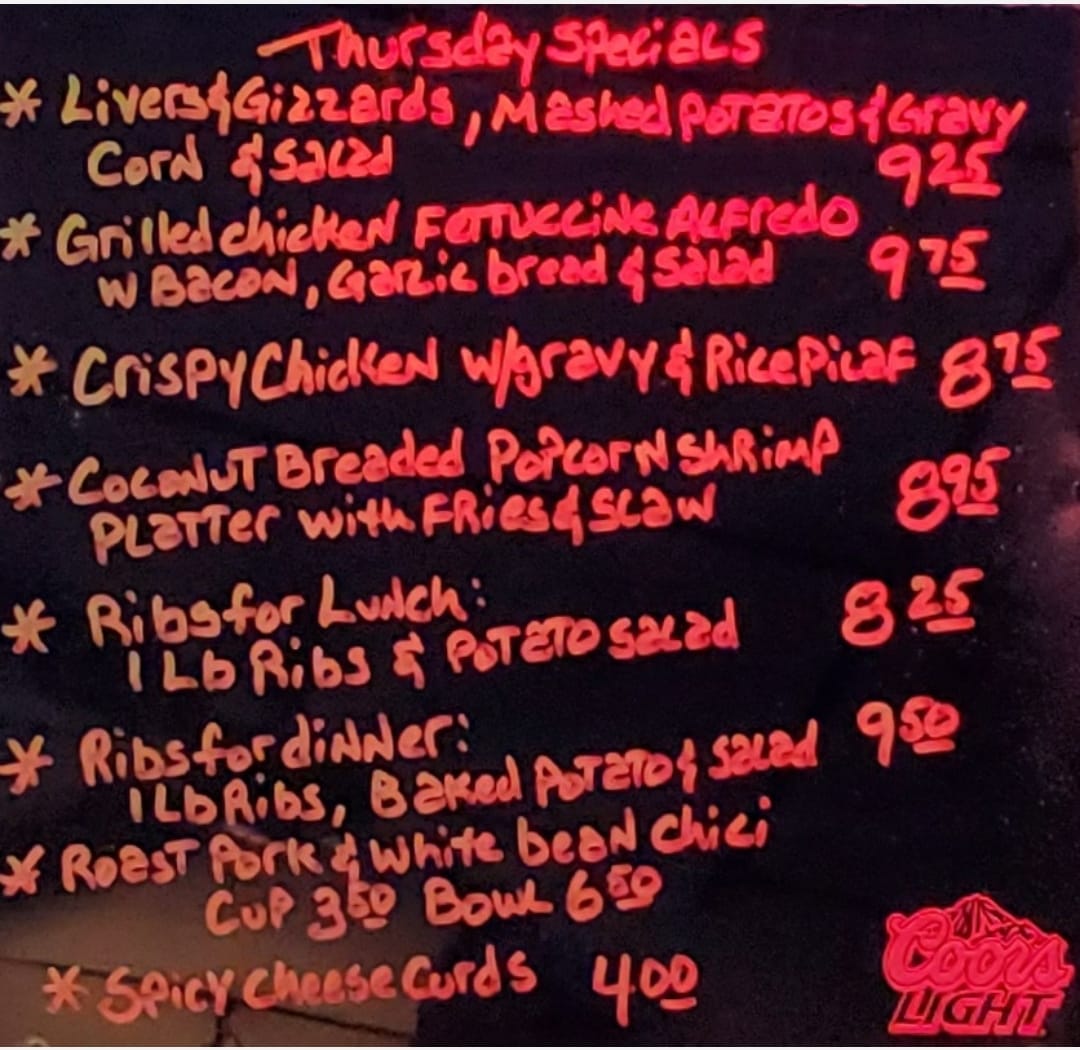 Thursday Specials
* Livers & Gizzards, Mashed Potatos & Gravy
Corn & Salad 9 25
* Grilled chicken Fettuccine Alfredo
w Bacon, Garlic bread & Salad 9 75
* Crispy Chicken w/gravy & Rice Pilaf 8 75
* Coconut Breaded Popcorn Shrimp
Platter with Fries & Slaw 8 95
* Ribs for Lunch:
1 Lb Ribs & Potato salad 8 25
* Ribs for dinner:
1 Lb Ribs, Baked Potato & salad 9 50
* Roast Pork & White bean chili
Cup 3 50 Bowl 6 50
* Spicy Cheese Curds 4 00
Coors
LIGHT